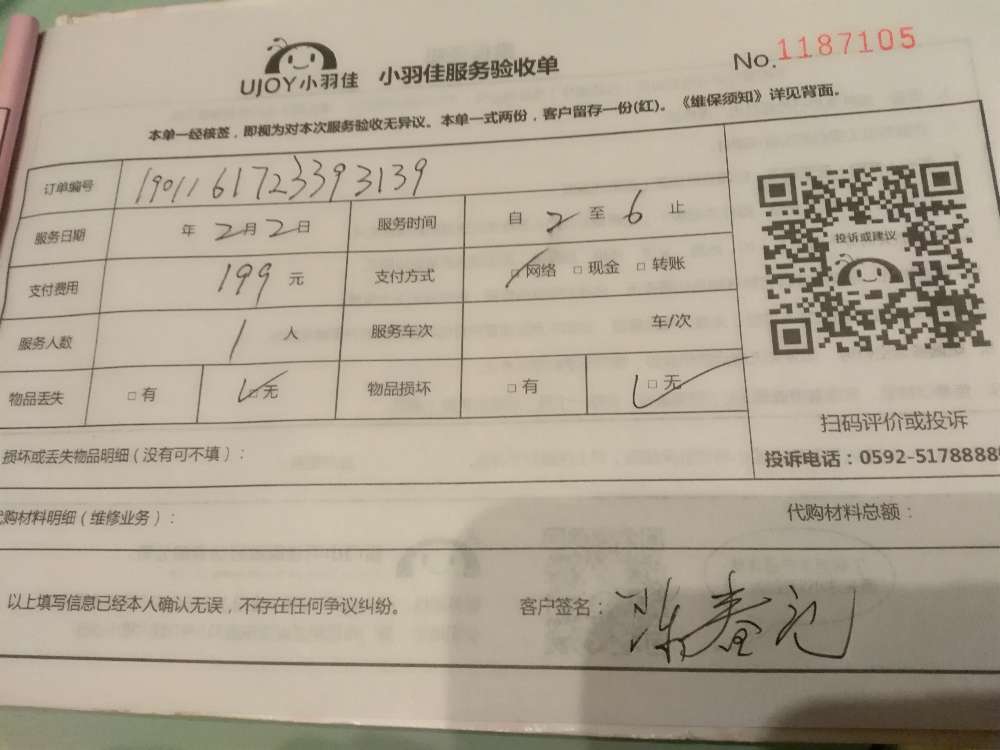 UJOY小羽佳 小羽佳服务验收单 No.1187105
本单一经核签，即视为对本次服务验收无异议。本单一式两份，客户留存一份(红)。《维保须知》详见背面。
订单编号 1901161723393139
服务日期 年 2月2日 服务时间 自 2 至 6 止
支付费用 199 元 支付方式 □网络 □现金 □转账
服务人数 1 人 服务车次 车/次
物品丢失 □有 □无 物品损坏 □有 □无
投诉或建议
扫码评价或投诉
投诉电话：0592-5178888
损坏或丢失物品明细(没有可不填)：
代购材料明细(维修业务)： 代购材料总额：
以上填写信息已经本人确认无误，不存在任何争议纠纷。 客户签名：